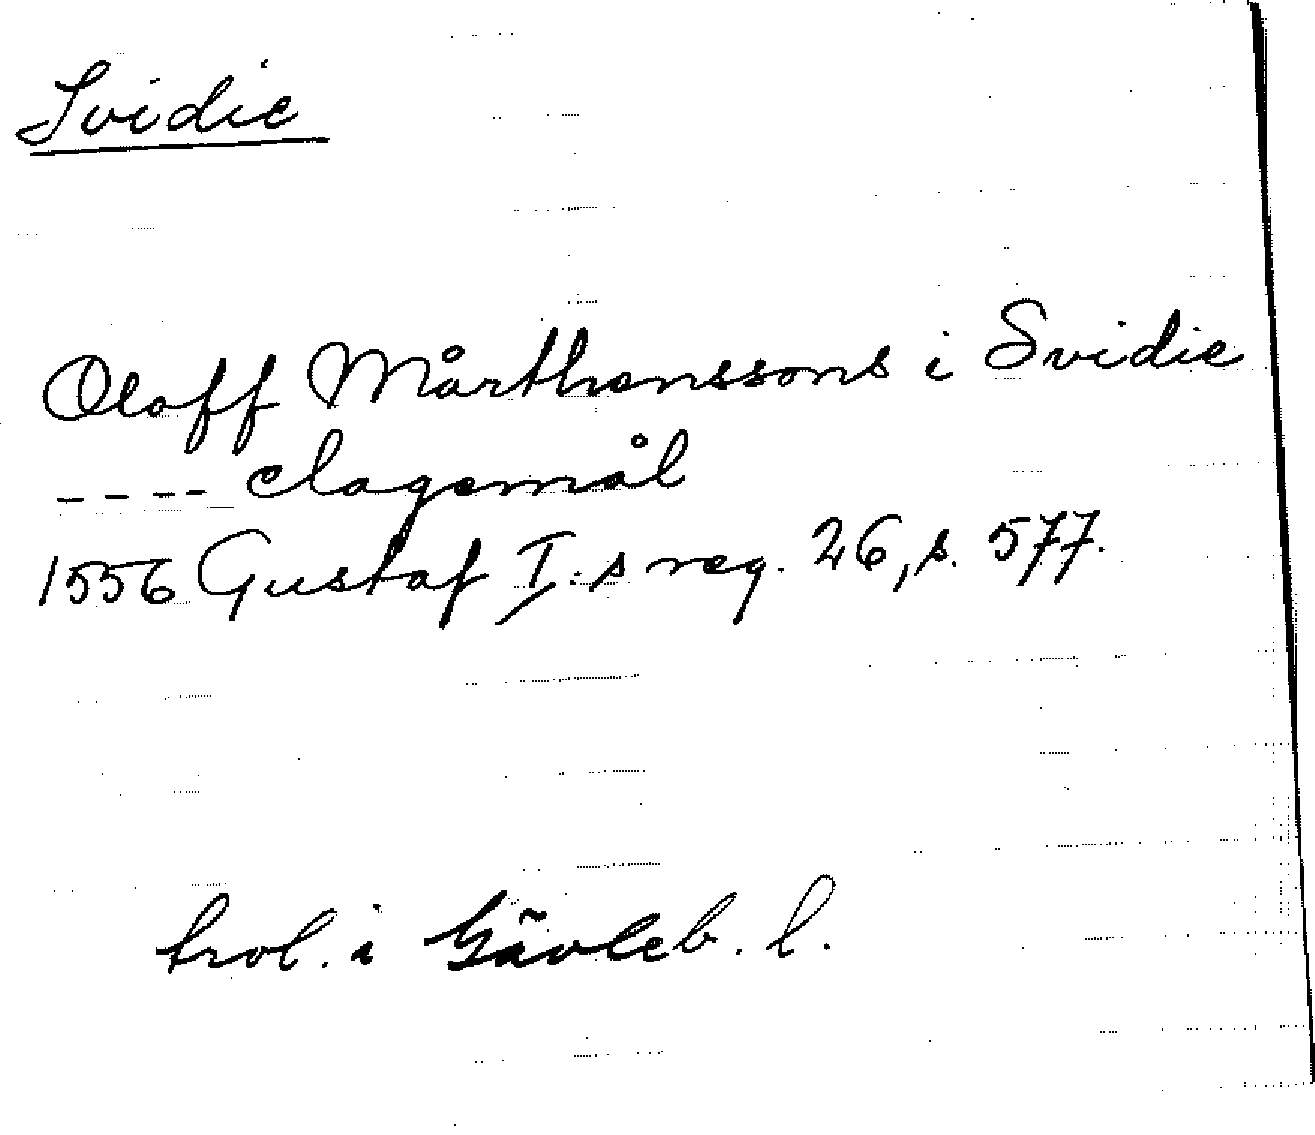 Svidie
Oloff Mårthenssons i Svidie
---- clagemål
1556 Gustaf I:s reg. 26, s. 577.
trol. i Gävleb. l.